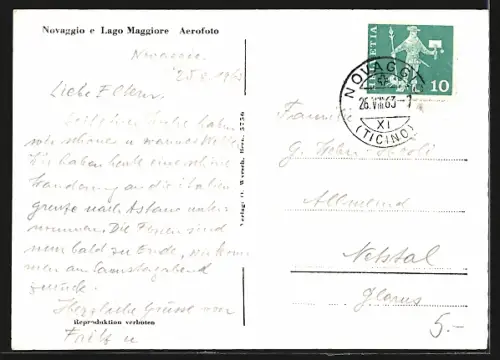 Novaggio e Lago Maggiore Aerofoto
Liebe Eltern,
haben
wir schönes u warmes
Wir haben heute eine schöne
Wanderung an die italien
grenze nach Astano unter-
nommen. Die Ferien sind
nun bald zu Ende, wir kom
men am Samstagabend
zurück.
Herzliche Grüsse von
Fritz u
Reproduktion verboten
HELVETIA
10
NOVAGGIO
26.VIII.63-7
XI
(TICINO)
Familie
G.
Allmend
Netstal
Glarus
5.-